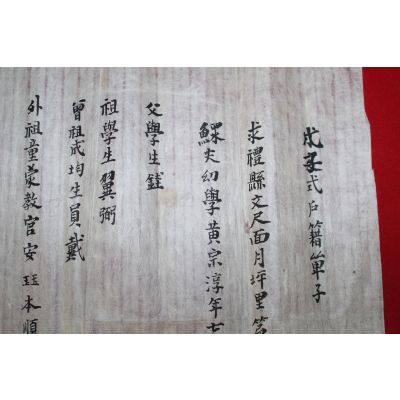 戊子式戶籍單子
求禮縣文尺面月坪里第
鰥夫幼學黃宗淳年七
父學生
祖學生翼弼
曾祖成均生員戴
外祖童蒙教官安珏本順